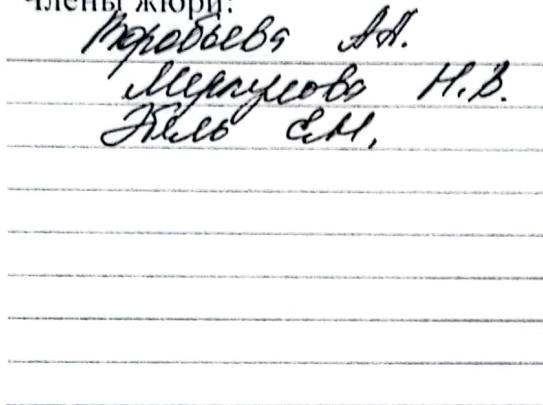 Члены жюри:
Воробьева А.А.
Меркулова Н.В.
Кель Е.М.